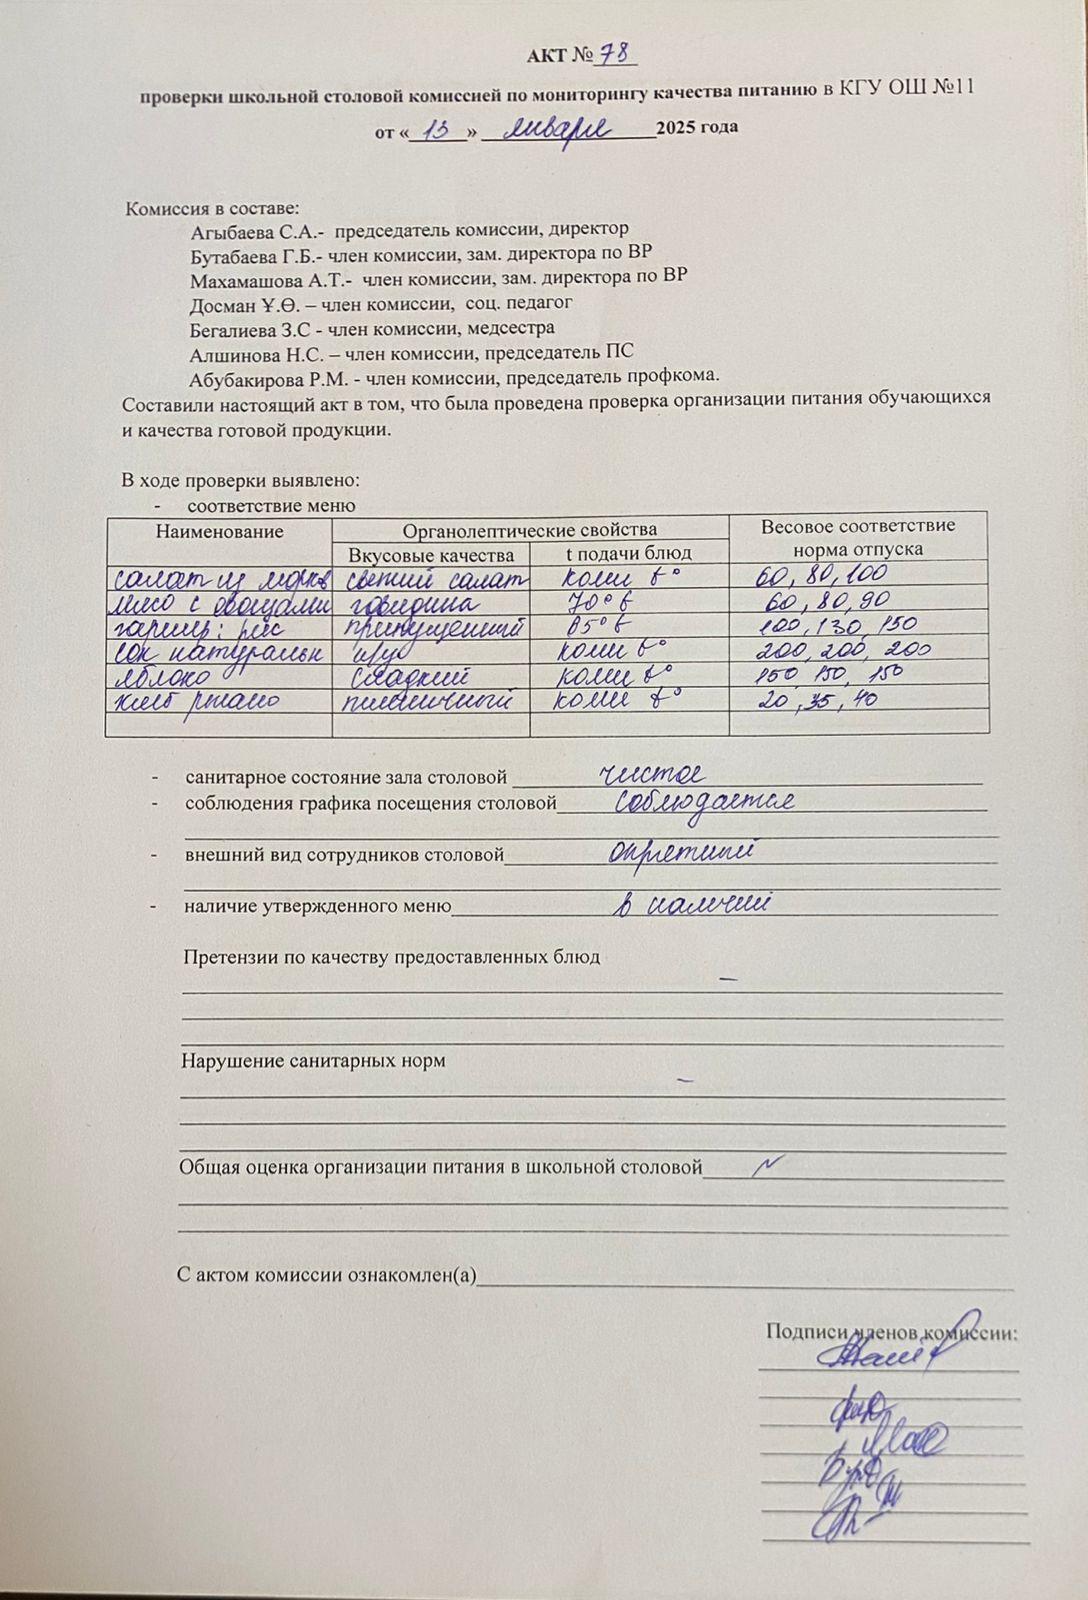 АКТ №_78_
проверки школьной столовой комиссией по мониторингу качества питанию в КГУ ОШ №11
от «_13_» _января_ 2025 года
Комиссия в составе:
Агыбаева С.А.- председатель комиссии, директор
Бутабаева Г.Б.- член комиссии, зам. директора по ВР
Махамашова А.Т.- член комиссии, зам. директора по ВР
Досман Ұ.Ө. – член комиссии, соц. педагог
Бегалиева З.С - член комиссии, медсестра
Алшинова Н.С. – член комиссии, председатель ПС
Абубакирова Р.М. - член комиссии, председатель профкома.
Составили настоящий акт в том, что была проведена проверка организации питания обучающихся
и качества готовой продукции.
В ходе проверки выявлено:
- соответствие меню
Наименование Органолептические свойства Весовое соответствие норма отпуска
Вкусовые качества t подачи блюд
салат из морков свежий салат комн t° 60, 80, 100
мясо с овощами говядина 70° t 60, 80, 90
гарнир: рис припущенный 65° t 100, 130, 150
сок натуральн комн t° 200, 200, 200
яблоко сладкий комн t° 150 150, 150
хлеб ржано пшеничный комн t° 20, 35, 40
- санитарное состояние зала столовой чистое
- соблюдения графика посещения столовой соблюдается
- внешний вид сотрудников столовой опрятный
- наличие утвержденного меню в наличий
Претензии по качеству предоставленных блюд
–
Нарушение санитарных норм
–
Общая оценка организации питания в школьной столовой
С актом комиссии ознакомлен(а)
Подписи членов комиссии: